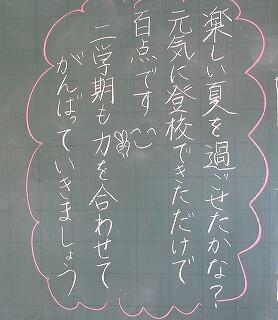 楽しい夏を過ごせたかな?
元気に登校できただけで
百点です
二学期も力を合わせて
がんばっていきましょう